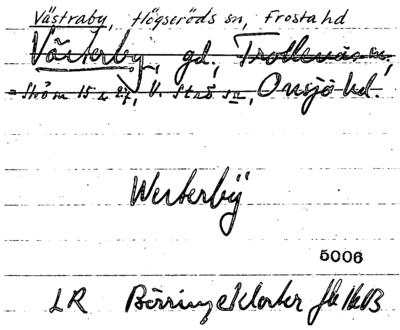 Västraby, Högseröds sn, Frosta hd
Västerby gd, Trollenäs sn.
= Sköm 15 u 27, V. Strö sn, Onsjö hd.
Westerbÿ
5006
LR Börringekloster jb 1603